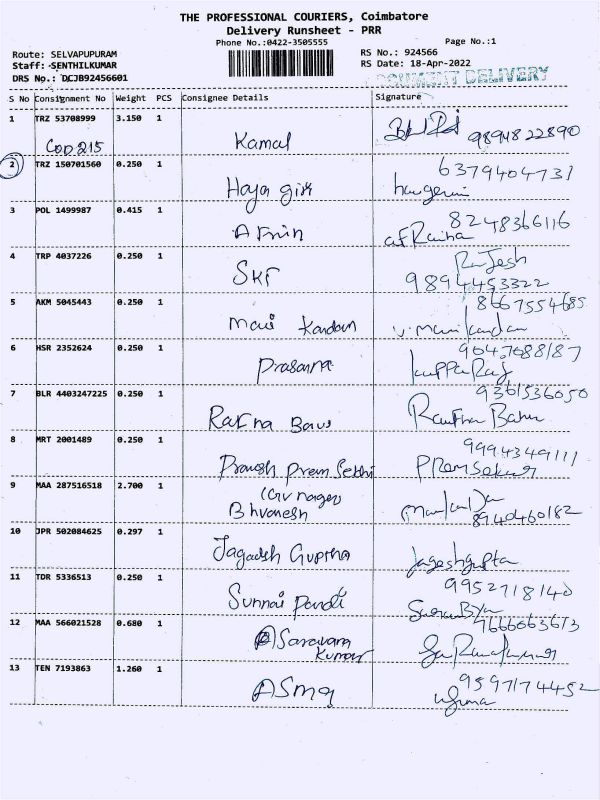 THE PROFESSIONAL COURIERS, Coimbatore
Delivery Runsheet - PRR
Phone No.:0422-3505555
Page No.:1
Route: SELVAPUPURAM
RS No.: 924566
Staff: SENTHILKUMAR
RS Date: 18-Apr-2022
DRS No.: DCJB92456601
DOCUMENT DELIVERY
S No Consignment No Weight PCS Consignee Details Signature
1 TRZ 53708999 3.150 1
COD 215 Kamal 9894822890
2 TRZ 150701560 0.250 1 6379404731
3 POL 1499987 0.415 1 8248366116
4 TRP 4037226 0.250 1 Rajesh
SKF 9894453322
5 AKM 5045443 0.250 1 8667554685
Mani Kandan V. Manikandan
6 HSR 2352624 0.250 1
Prasanna KuppaRaj
7 BLR 4403247225 0.250 1 9361536050
Ratna Babu Ratna Babu
8 MRT 2001489 0.250 1 9994349111
Prem Premsekar
9 MAA 287516518 2.700 1
Bhvanesh 8940460182
10 JPR 502084625 0.297 1
Jagadsh Guptha Jageshgupta
11 TDR 5336513 0.250 1 9952718140
Pandi
12 MAA 566021528 0.680 1 7666663613
Saravana
Kumar
13 TEN 7193863 1.260 1 9597174452
Asma